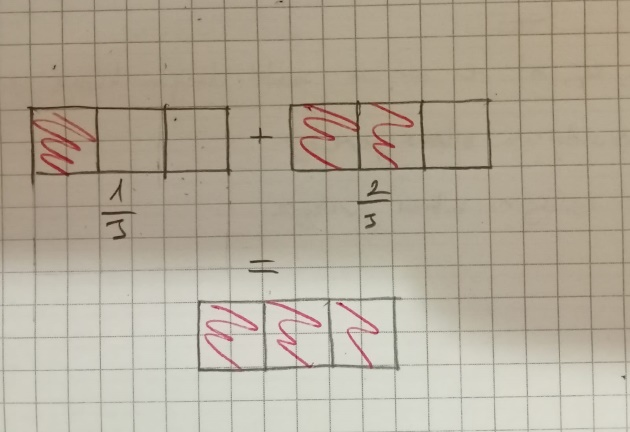 +
1/3 2/3
=